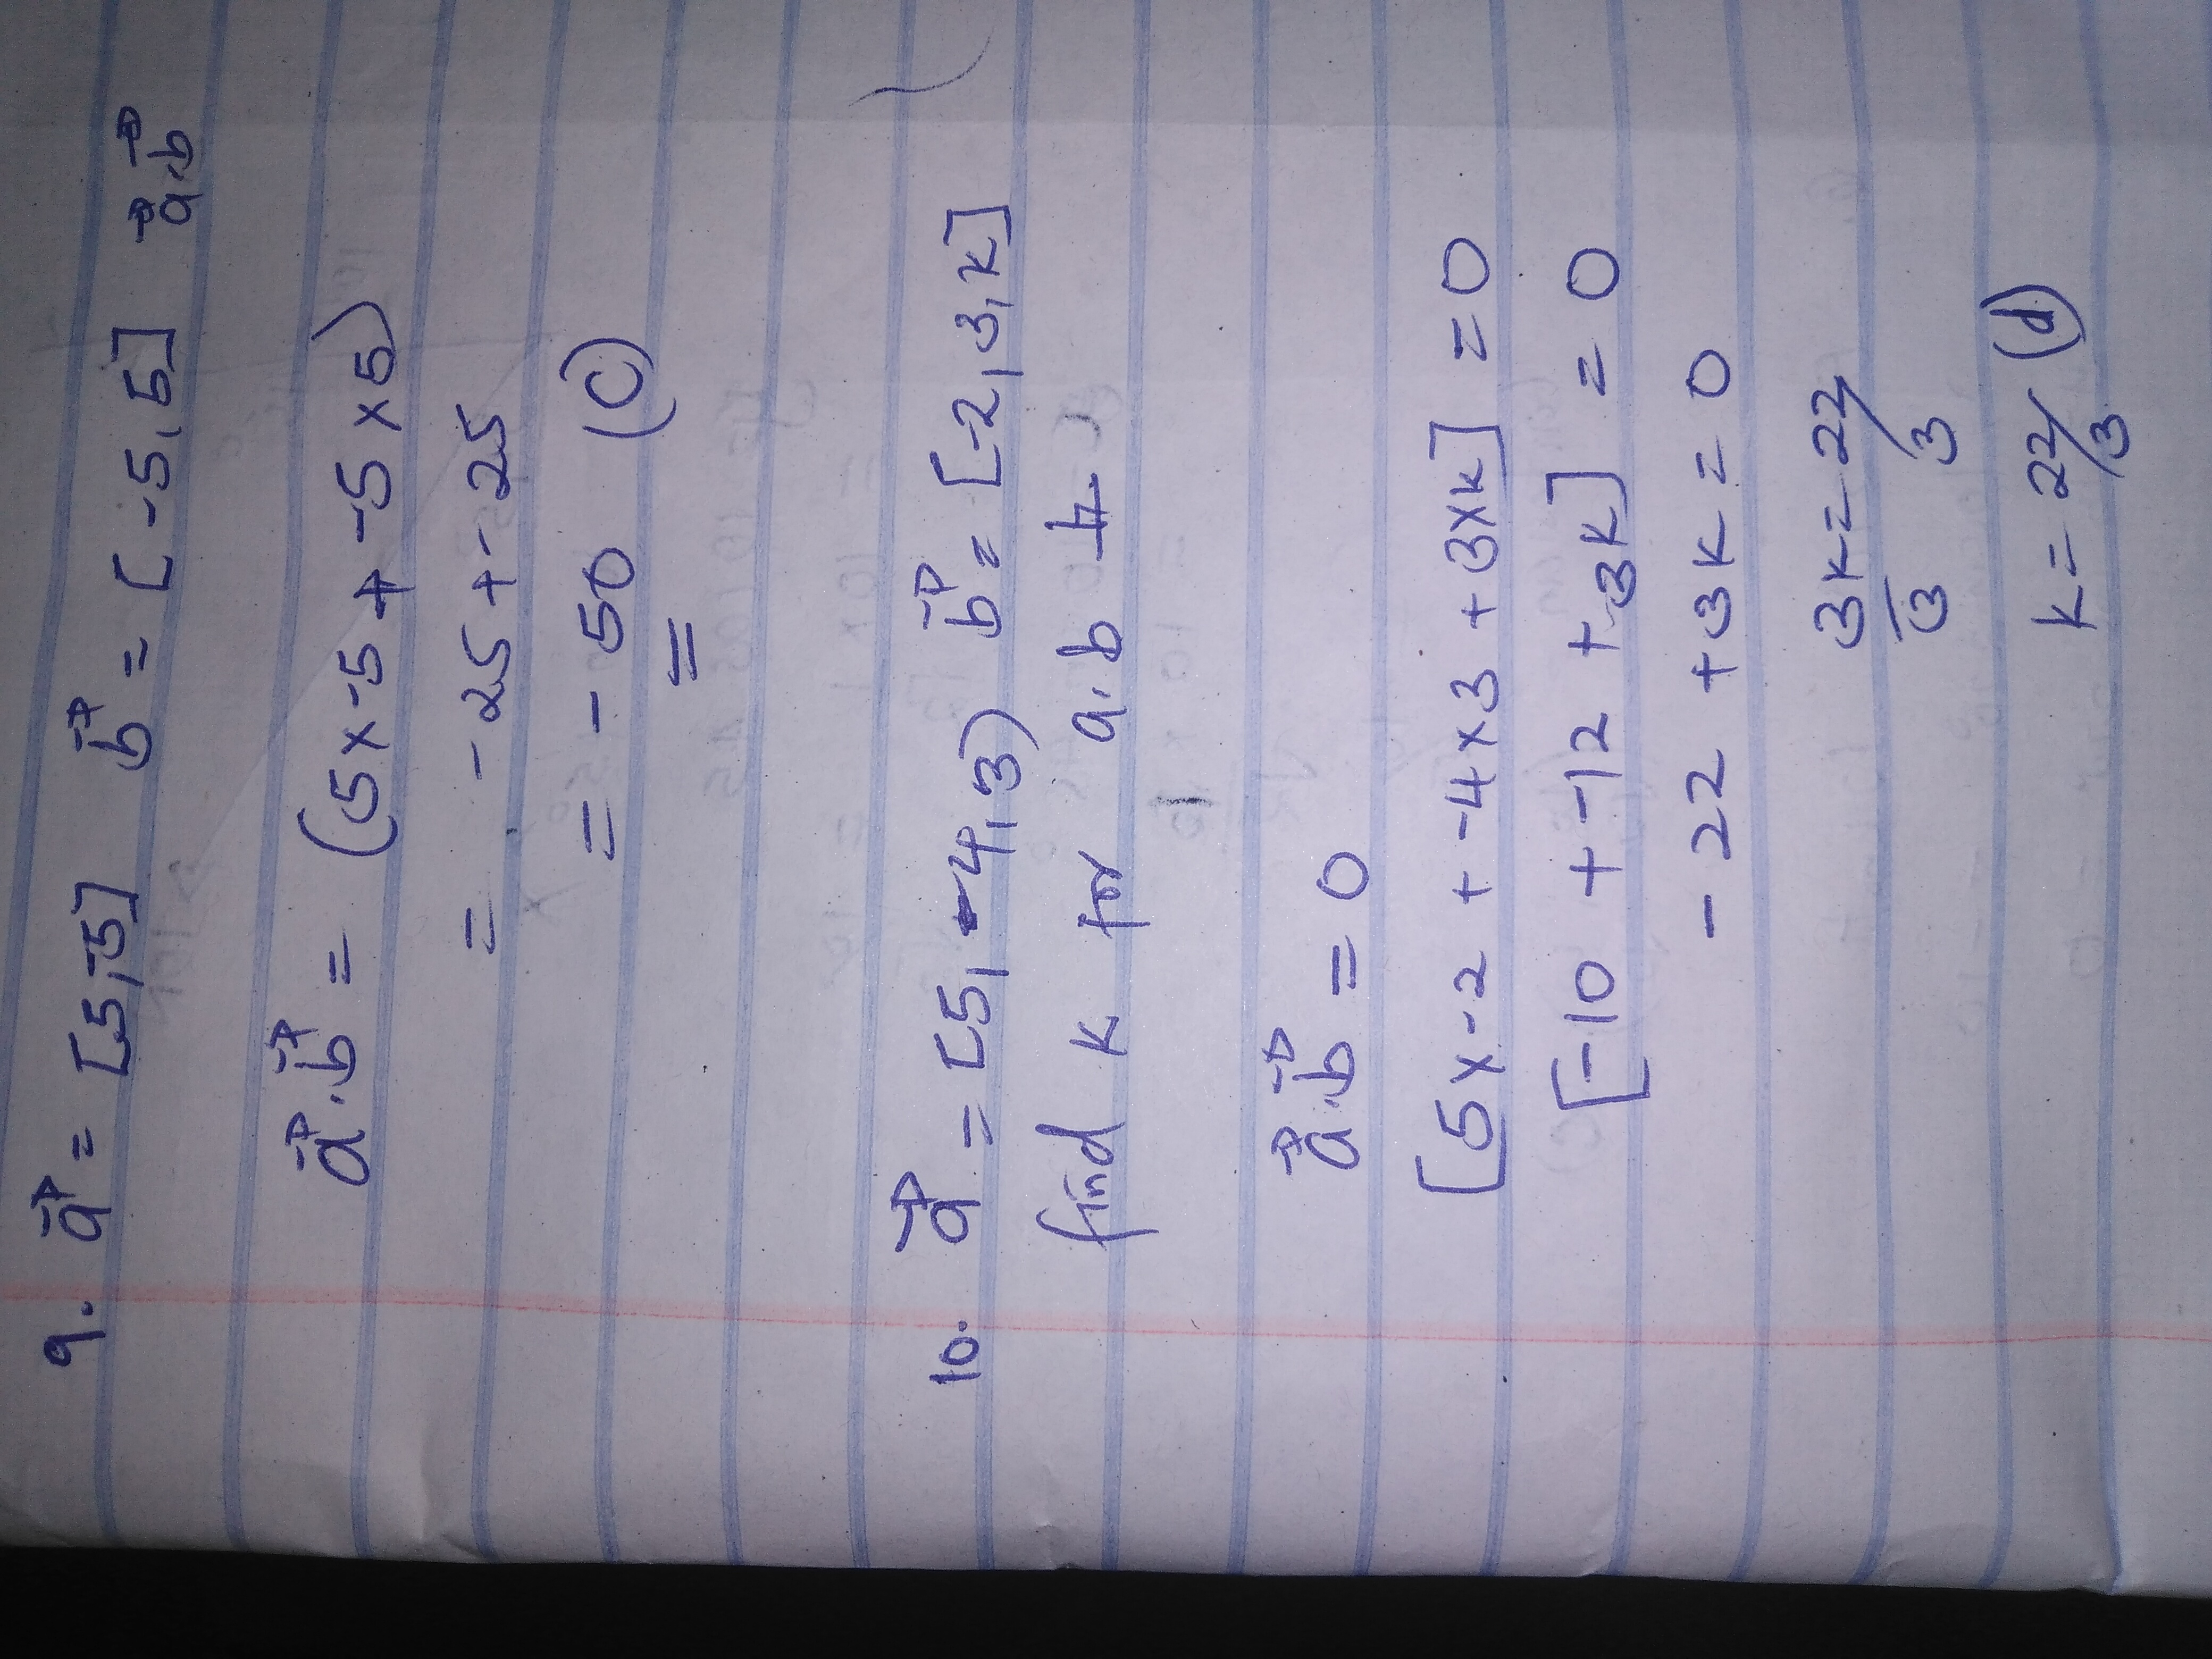 9. a⃗ = [5,-5] b⃗ = [-5,5] a⃗.b⃗
a⃗.b⃗ = (5x-5 + -5x5)
= -25 + -25
= -50 (C)
10. a⃗ = [5,-4,3) b⃗ = [-2,3,k]
find k for a.b
a⃗.b⃗ = 0
[5x-2 + -4x3 + 3xk] = 0
[-10 + -12 + 3k] = 0
-22 + 3k = 0
3k/3 = 22/3
k = 22/3 (d)